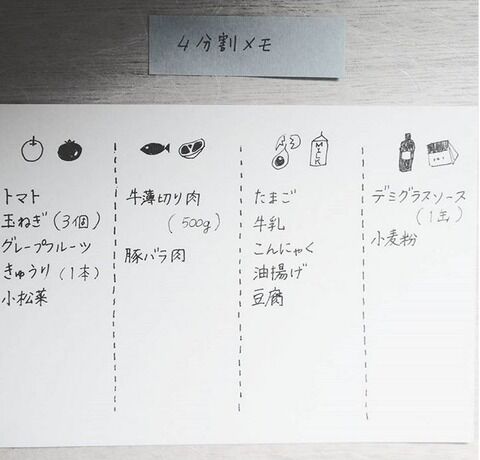 4分割メモ
MILK
トマト
玉ねぎ(3個)
グレープフルーツ
きゅうり(1本)
小松菜
牛薄切り肉
(500g)
豚バラ肉
たまご
牛乳
こんにゃく
油揚げ
豆腐
デミグラスソース
(1缶)
小麦粉